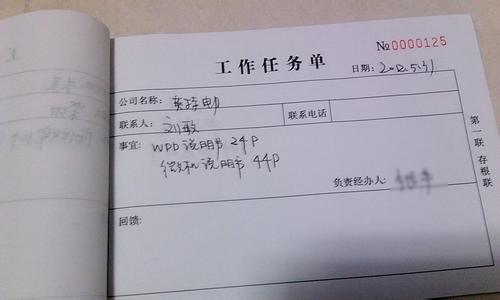 工作任务单
No 0000125
日期: 2012.5.31
公司名称:
联系人: 刘敏
联系电话
事宜: WPD 说明书 24P
微机说明书 44P
负责经办人:
回馈:
第一联 存根联